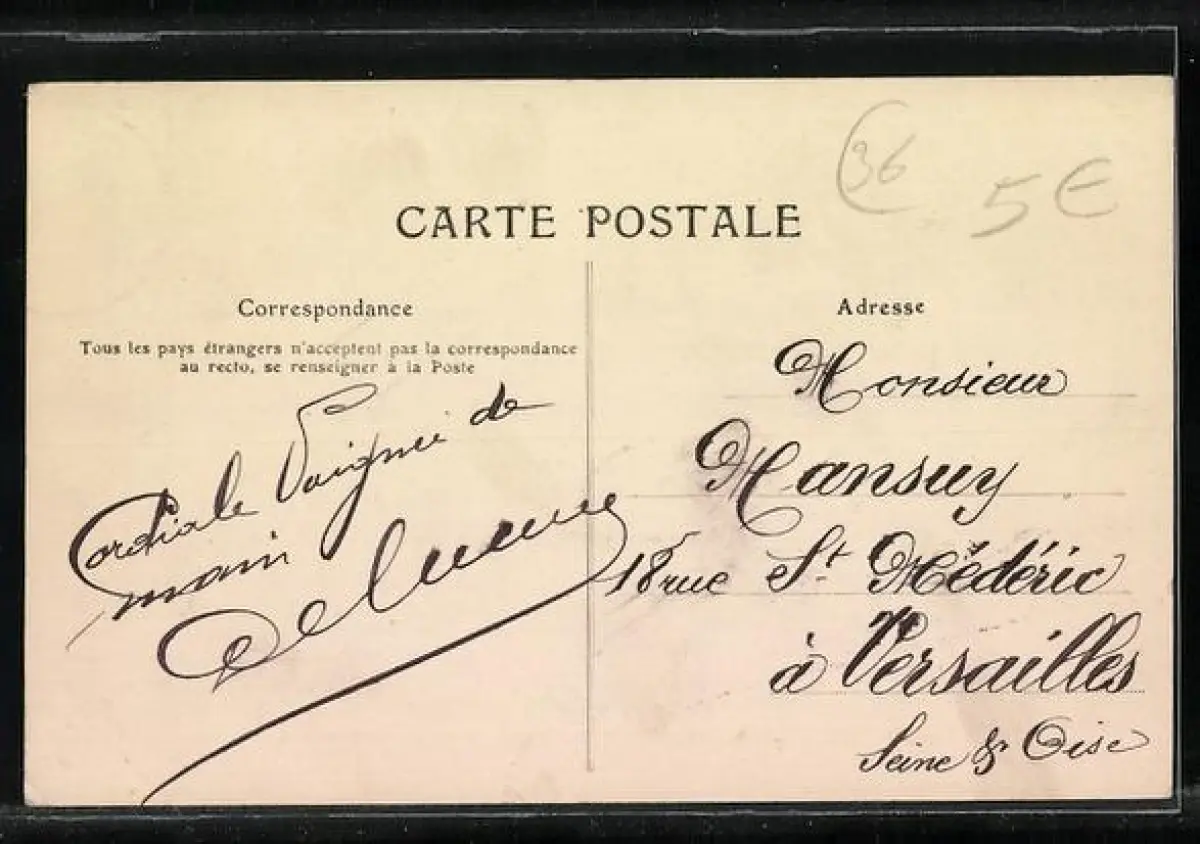 36
5€
CARTE POSTALE
Correspondance
Tous les pays étrangers n'acceptent pas la correspondance
au recto, se renseigner à la Poste
Cordiale Poignée de
main
Adresse
Monsieur
Mansuy
18 rue St. Médéric
à Versailles
Seine & Oise